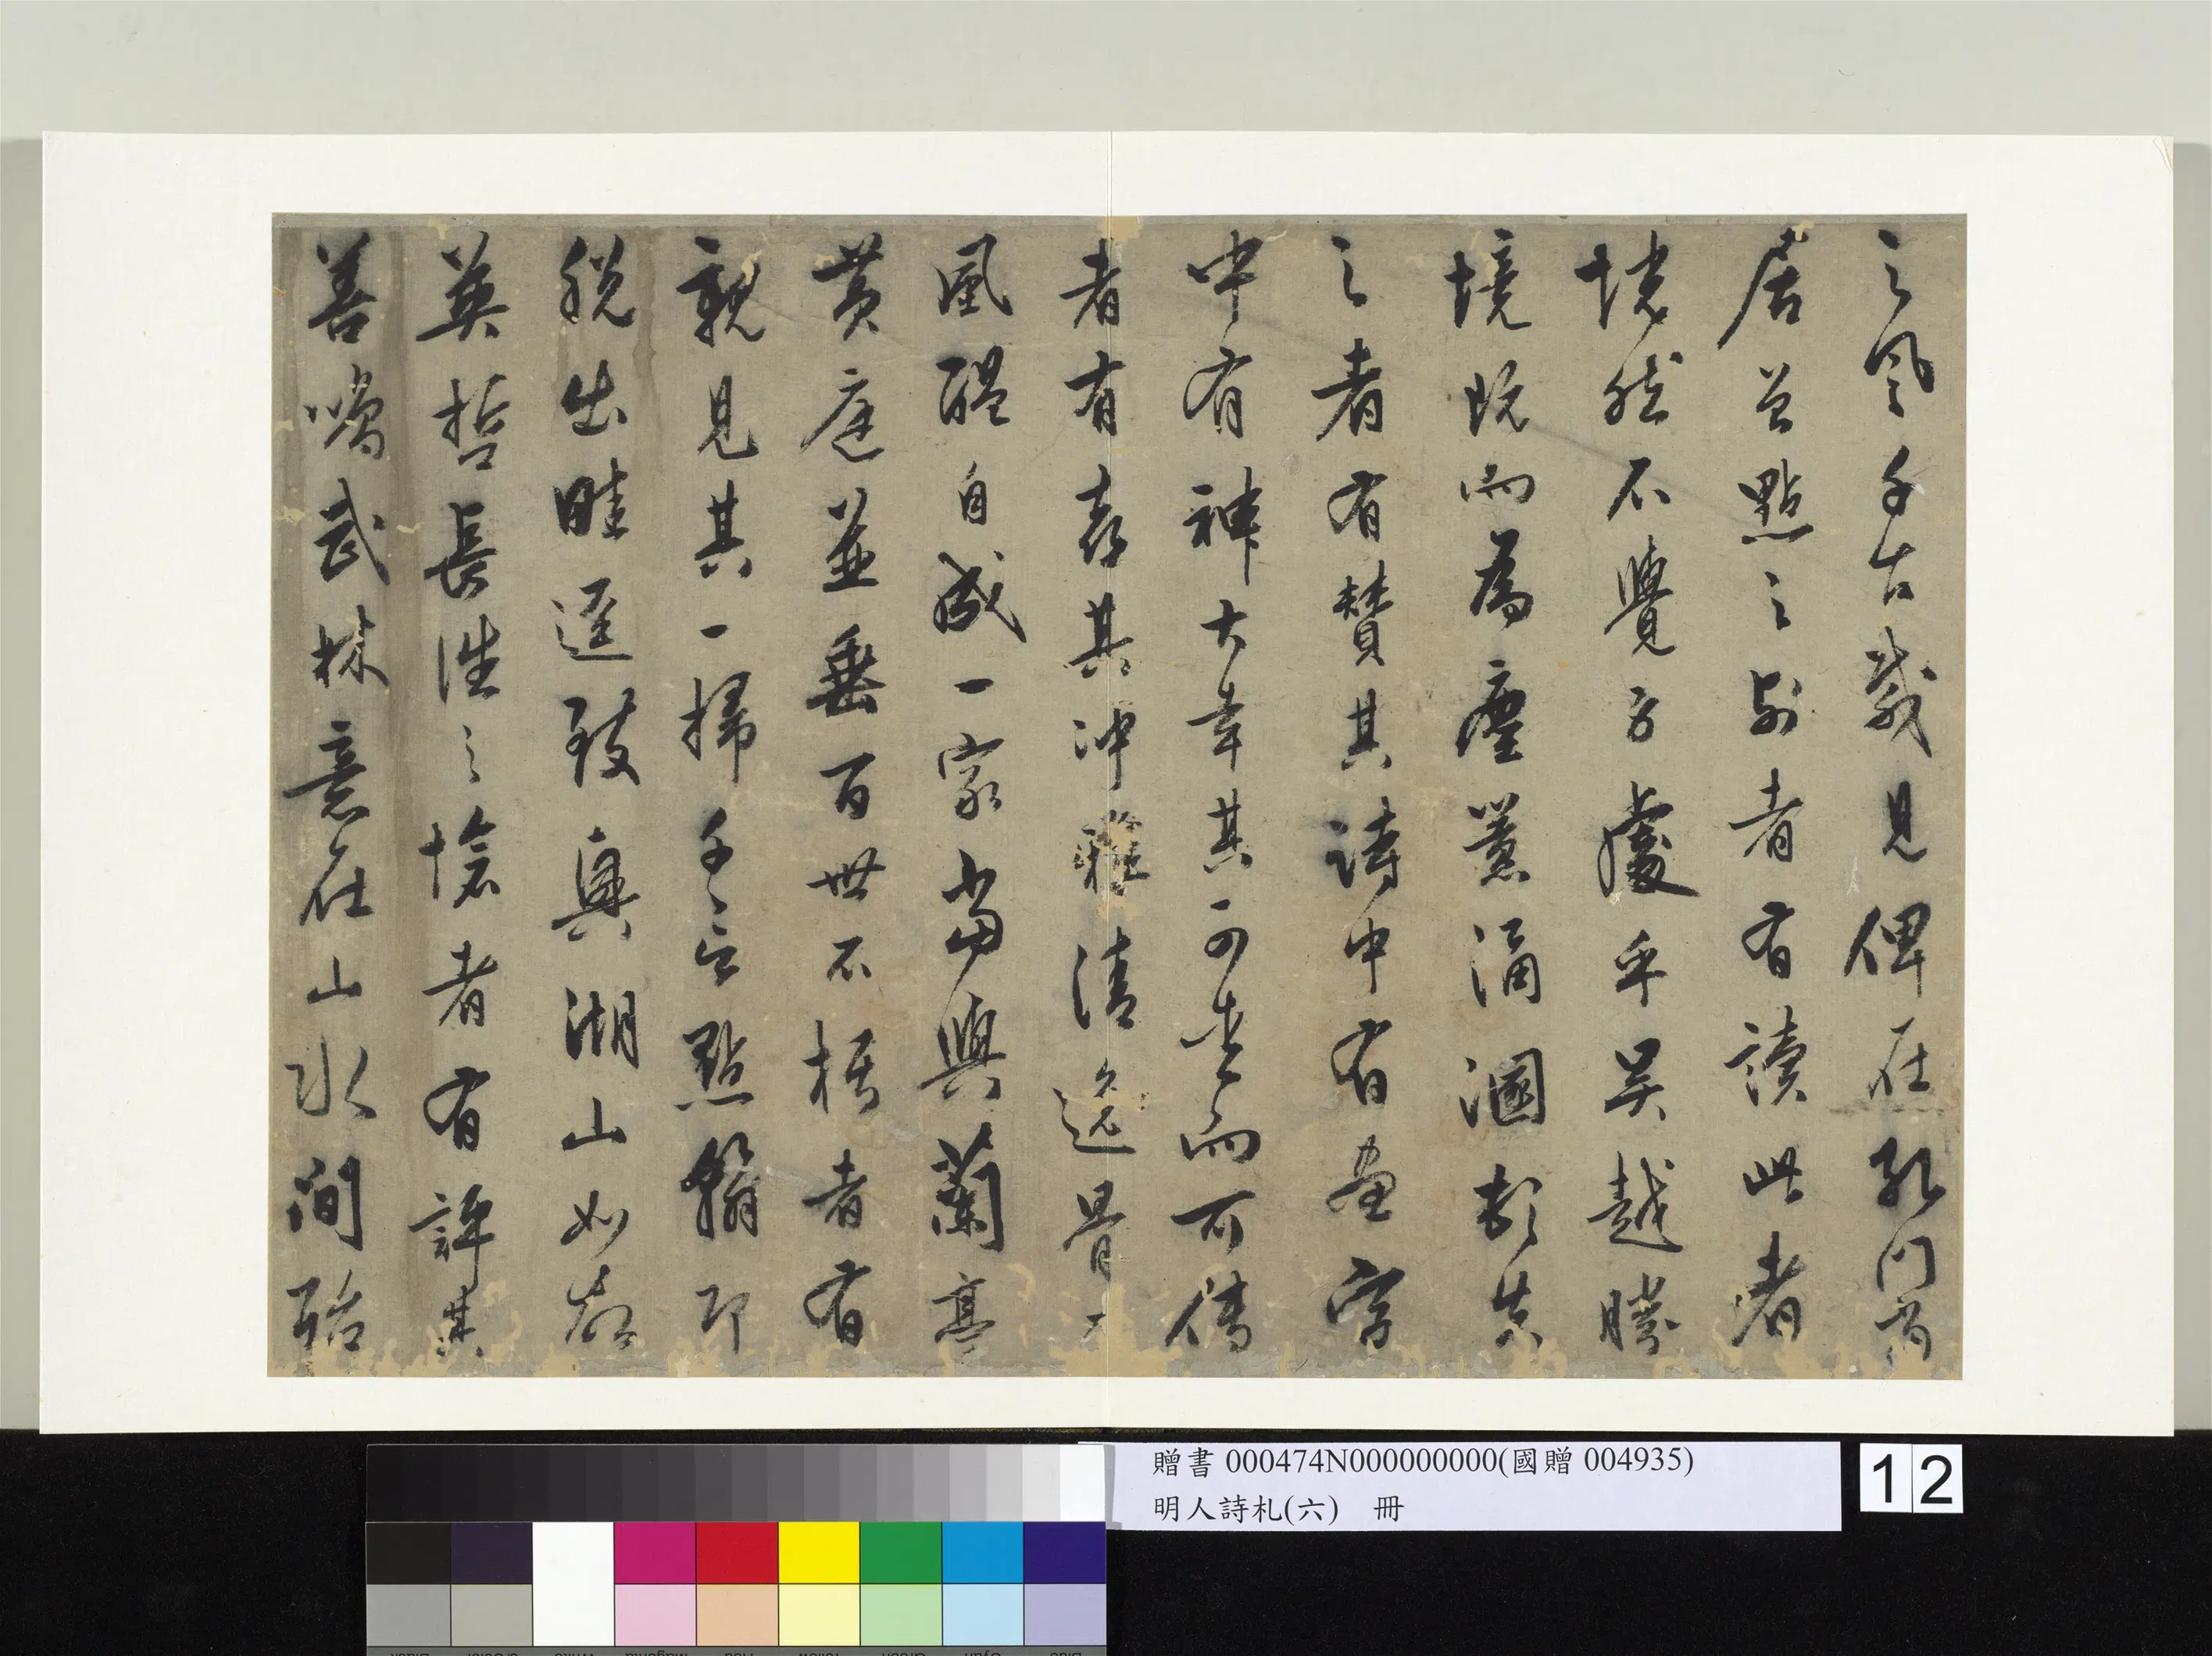 之風千古幾見俾在孔門當
居曾點之列者有讀此者
恍然不覺處乎吳越勝
境既而為塵涵溷都失
之者有贊其詩中有畫字
中有神大幸其可垂而可傳
者有喜其沖雅清逸骨
風醞自成一家當與蘭亭
黃庭並垂百世不朽者有
親見其一掃千言點翰即
脫出畦逕致興湖山如
英哲長往之愴者有評其
善鳴武林意在山水間殆
贈書 000474N000000000(國贈 004935)
明人詩札(六) 冊
12